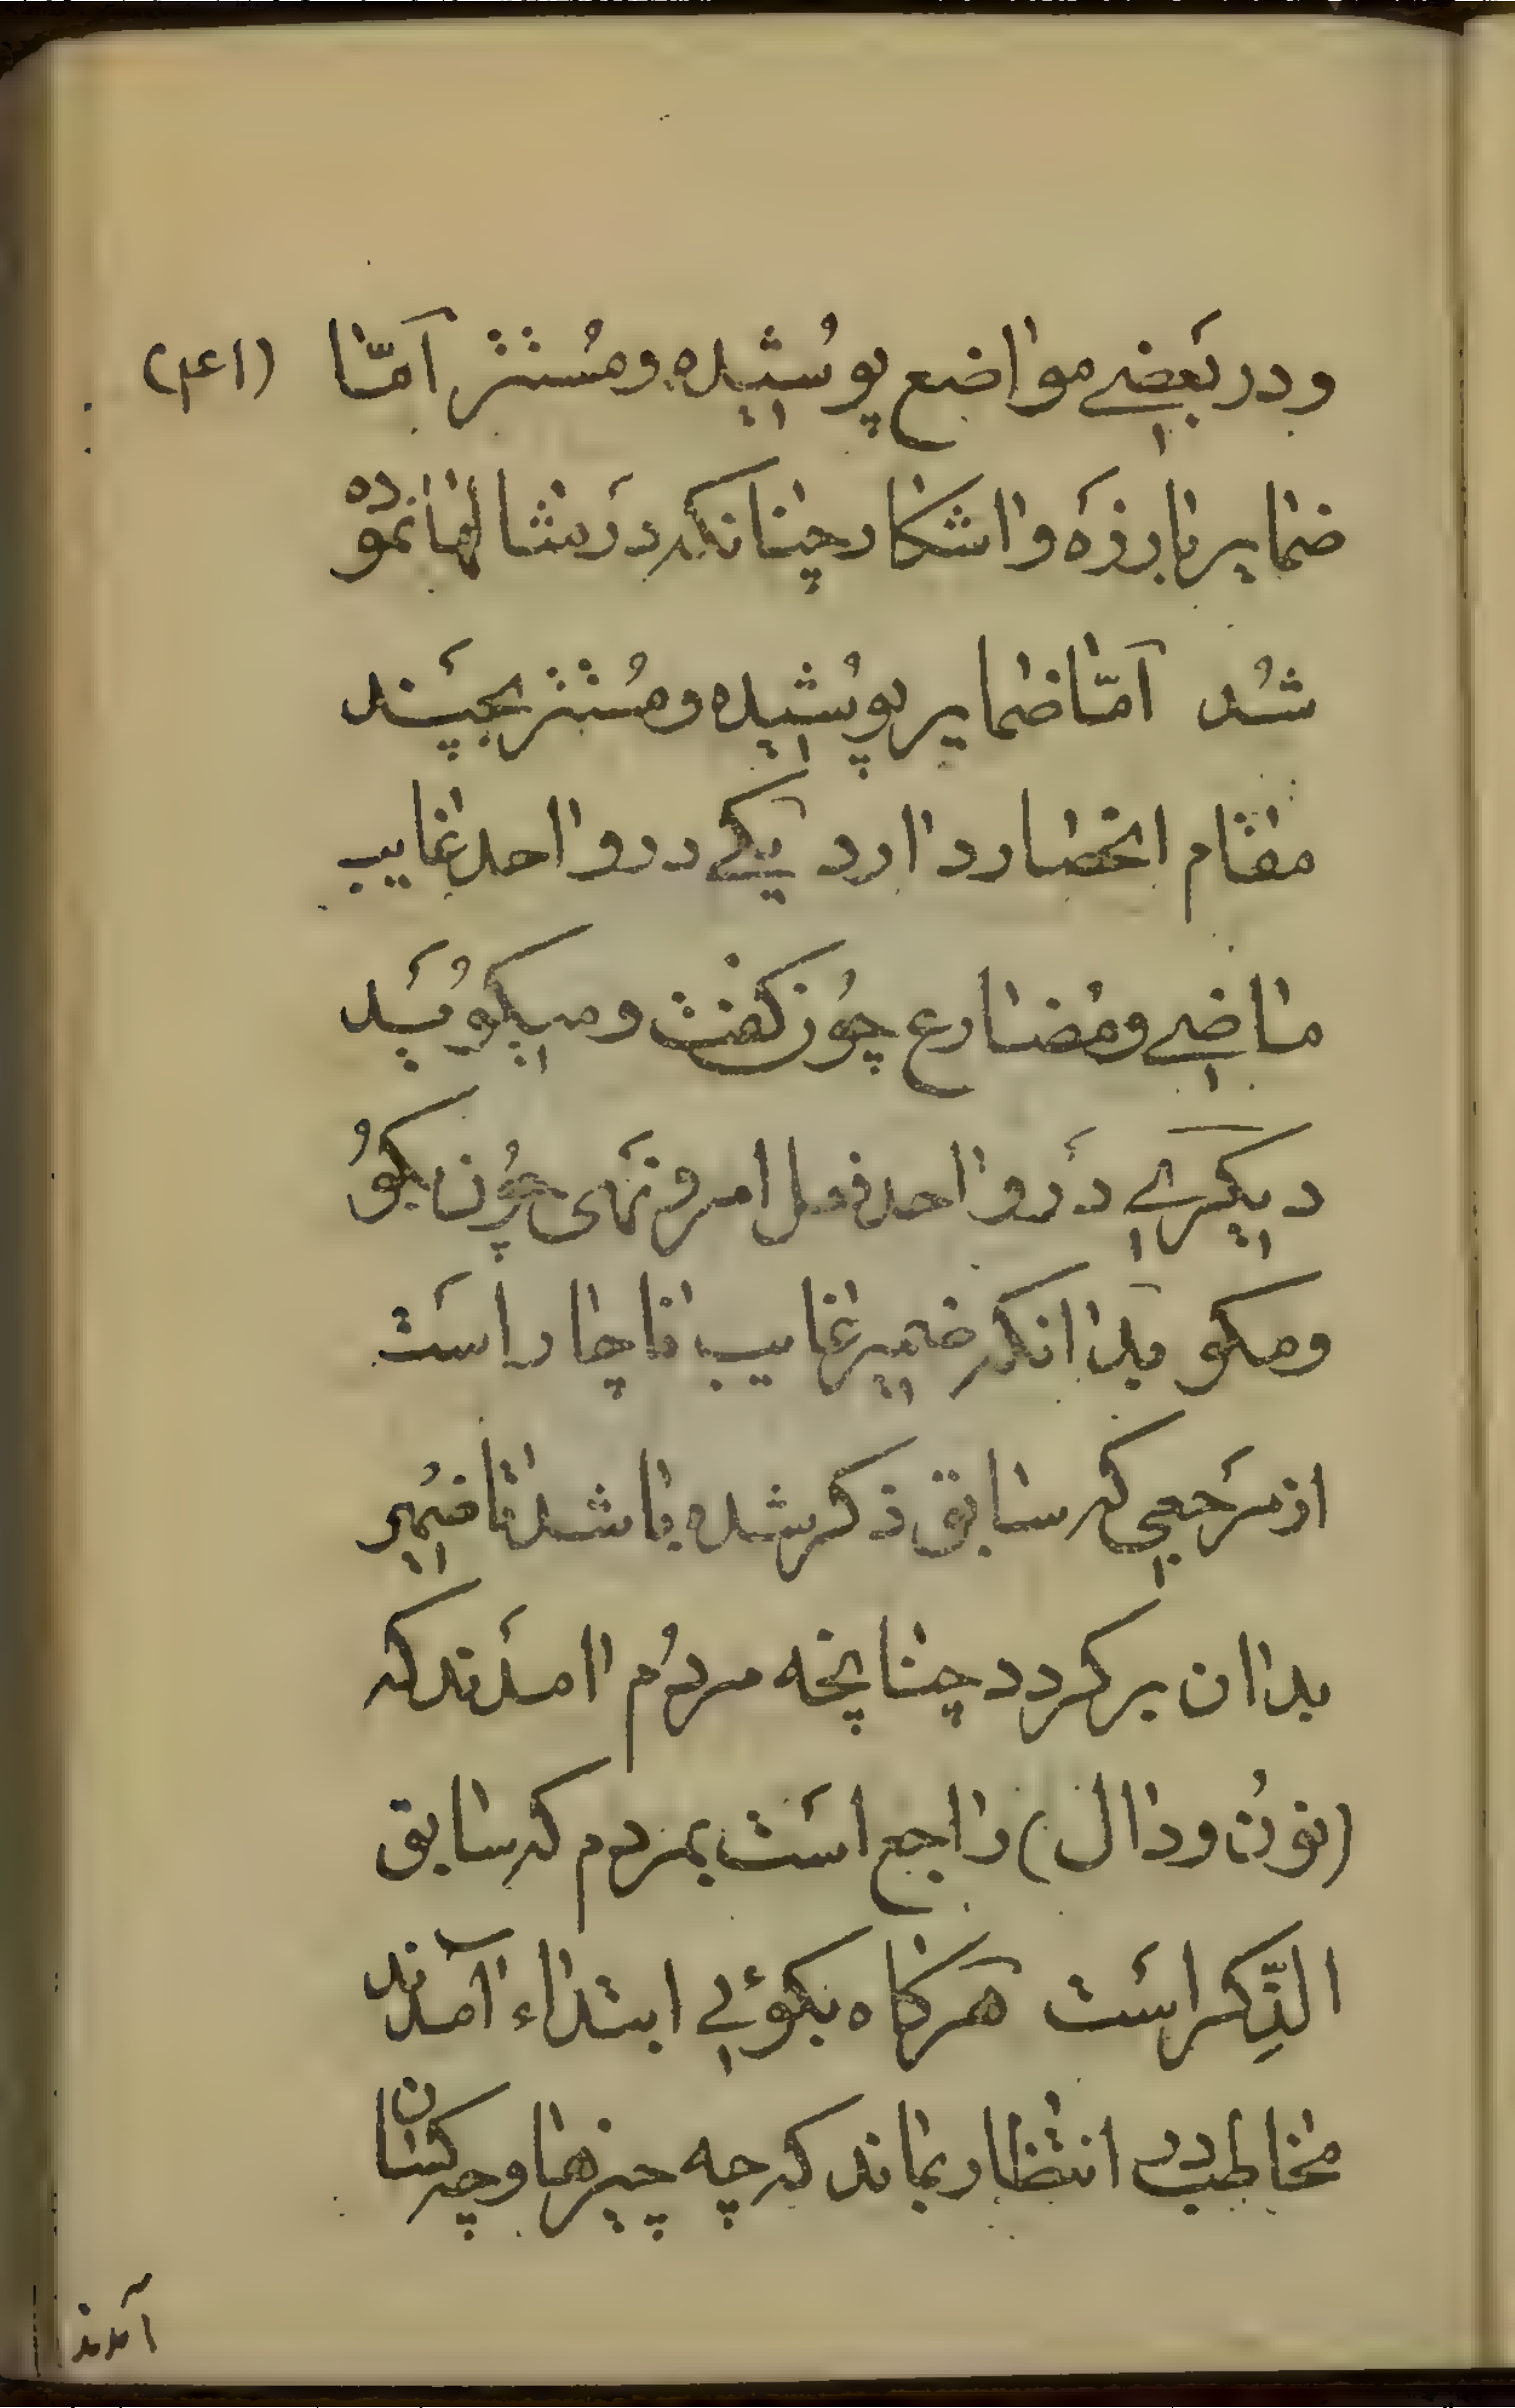 و در بَعضے مواضع پوُشیده و مُستتر اَمّا (۴۱)
ضمایر بارزَه و اشکار چنانکه دَر مثالها نموده
شُد اَمّا ضمایر پوُشیده و مُستتر بچَند
مقام انحصار دارد یکے در واحد غایب
ماضے و مُضارع چوُن کفت و میکوُیَد
دیکرے دَر واحد فعل امر و نَهی چوُن بکوُ
و مکو بدانکه ضمیر غایب ناچار استَ
از مَرجعی که سابق ذکر شده باشد تا ضمیر
بدان برکردد چنانچه مردُم امدَند که
(نوُن و دال) راجع استَ بمردم که سابق
الذِّکر استَ هَرکاه بکوئے ابتداء آمدَند
مخاطب در انتظار بماند که چه چیزها و چه کسان
آمدند